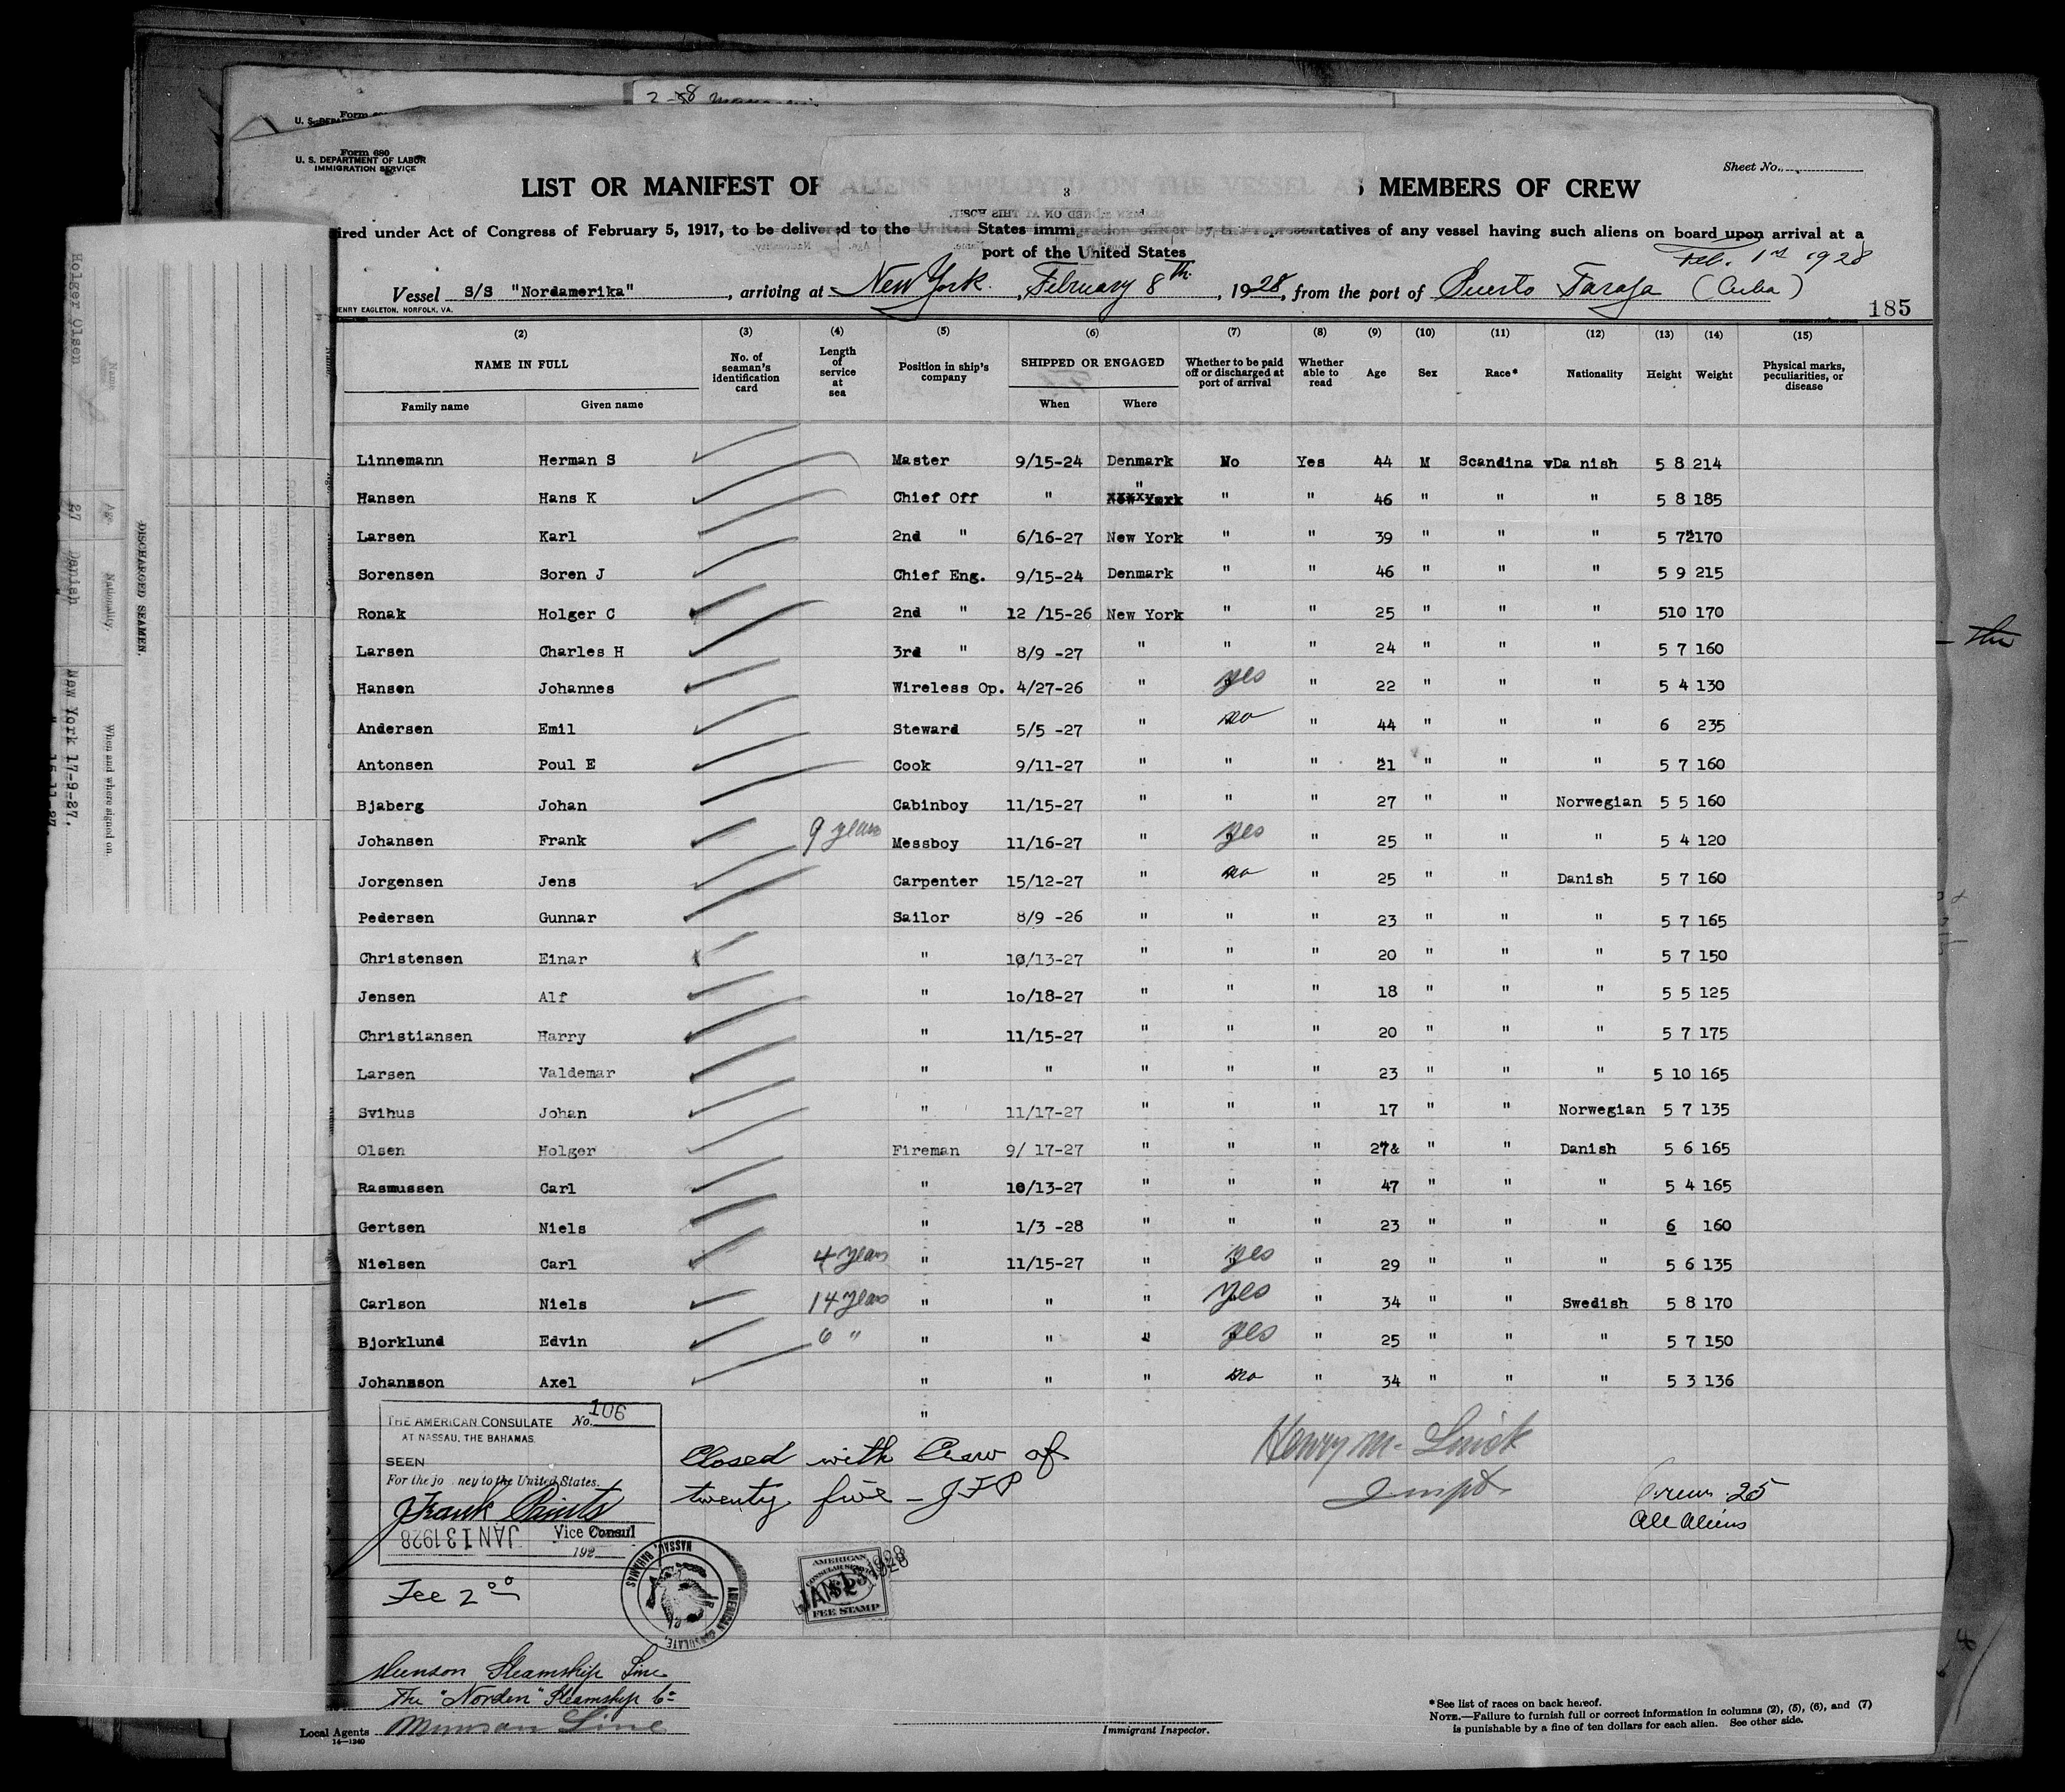 2-8
Form 680
U. S. DEPARTMENT OF LABOR
IMMIGRATION SERVICE
Sheet No.
LIST OR MANIFEST OF ALIENS EMPLOYED ON THE VESSEL AS MEMBERS OF CREW
3
ired under Act of Congress of February 5, 1917, to be delivered to the United States immigration officer by the representatives of any vessel having such aliens on board upon arrival at a
port of the United States
Feb. 1st 1928
Vessel S/S "Nordamerika", arriving at New York, February 8th, 1928, from the port of Puerto Tarafa (Cuba)
ENRY EAGLETON, NORFOLK, VA.
185
(2) (3) (4) (5) (6) (7) (8) (9) (10) (11) (12) (13) (14) (15)
NAME IN FULL Family name Given name No. of seaman's identification card Length of service at sea Position in ship's company SHIPPED OR ENGAGED When Where Whether to be paid off or discharged at port of arrival Whether able to read Age Sex Race* Nationality Height Weight Physical marks, peculiarities, or disease
Linnemann Herman S Master 9/15-24 Denmark No Yes 44 M Scandinav Da nish 5 8 214
Hansen Hans K Chief Off " " " " 46 " " " 5 8 185
Larsen Karl 2nd " 6/16-27 New York " " 39 " " " 5 7 170
Sorensen Soren J Chief Eng. 9/15-24 Denmark " " 46 " " " 5 9 215
Ronak Holger C 2nd " 12 /15-26 New York " " 25 " " " 510 170
Larsen Charles H 3rd " 8/9 -27 " " " 24 " " " 5 7 160
Hansen Johannes Wireless Op. 4/27-26 " yes " 22 " " " 5 4 130
Andersen Emil Steward 5/5 -27 " no " 44 " " " 6 235
Antonsen Poul E Cook 9/11-27 " " " 21 " " " 5 7 160
Bjaberg Johan Cabinboy 11/15-27 " " " 27 " " Norwegian 5 5 160
Johansen Frank 9 years Messboy 11/16-27 " yes " 25 " " " 5 4 120
Jorgensen Jens Carpenter 15/12-27 " no " 25 " " Danish 5 7 160
Pedersen Gunnar Sailor 8/9 -26 " " " 23 " " " 5 7 165
Christensen Einar " 10/13-27 " " " 20 " " " 5 7 150
Jensen Alf " 1o/18-27 " " " 18 " " " 5 5 125
Christiansen Harry " 11/15-27 " " " 20 " " " 5 7 175
Larsen Valdemar " " " " " 23 " " " 5 10 165
Svihus Johan " 11/17-27 " " " 17 " " Norwegian 5 7 135
Olsen Holger Fireman 9/ 17-27 " " " 27& " " Danish 5 6 165
Rasmussen Carl " 10/13-27 " " " 47 " " " 5 4 165
Gertsen Niels " 1/3 -28 " " " 23 " " " 6 160
Nielsen Carl 4 years " 11/15-27 " yes " 29 " " " 5 6 135
Carlson Niels 14 years " " " yes " 34 " " Swedish 5 8 170
Bjorklund Edvin 6 " " " " yes " 25 " " " 5 7 150
Johansson Axel " " " no " 34 " " " 5 3 136
"
THE AMERICAN CONSULATE No. 106
AT NASSAU, THE BAHAMAS
SEEN
For the jo ney to the United States.
Vice Consul
JAN 13 1928
192
Fee 2 00
Closed with Crew of
twenty five - JFP
AMERICAN CONSULATE, NASSAU, BAHAMAS
AMERICAN
CONSULAR SERVICE
$2
FEE STAMP
JAN 13 1928
Inspt
Crew 25
All Aliens
Munson Steamship Line
The "Norden" Steamship Co
Local Agents Munson Line
14-1240
Immigrant Inspector.
*See list of races on back hereof.
NOTE.—Failure to furnish full or correct information in columns (2), (5), (6), and (7)
is punishable by a fine of ten dollars for each alien. See other side.
DISCHARGED SEAMEN.
Name Age. Nationality. When and where signed on.
Holger Olsen 27 Danish New York 17-9-27,
the